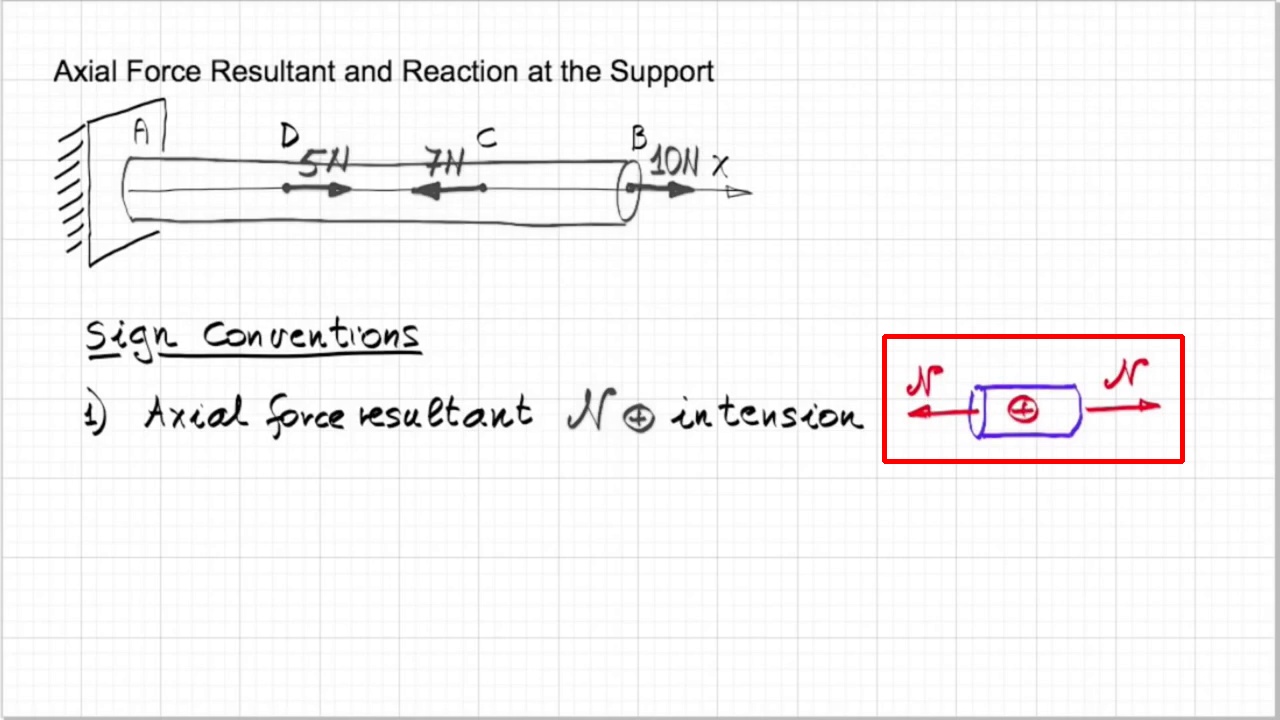 Axial Force Resultant and Reaction at the Support
A D 5N 7N C B 10N x
Sign Conventions
1) Axial force resultant N ⊕ in tension
N ⊕ N